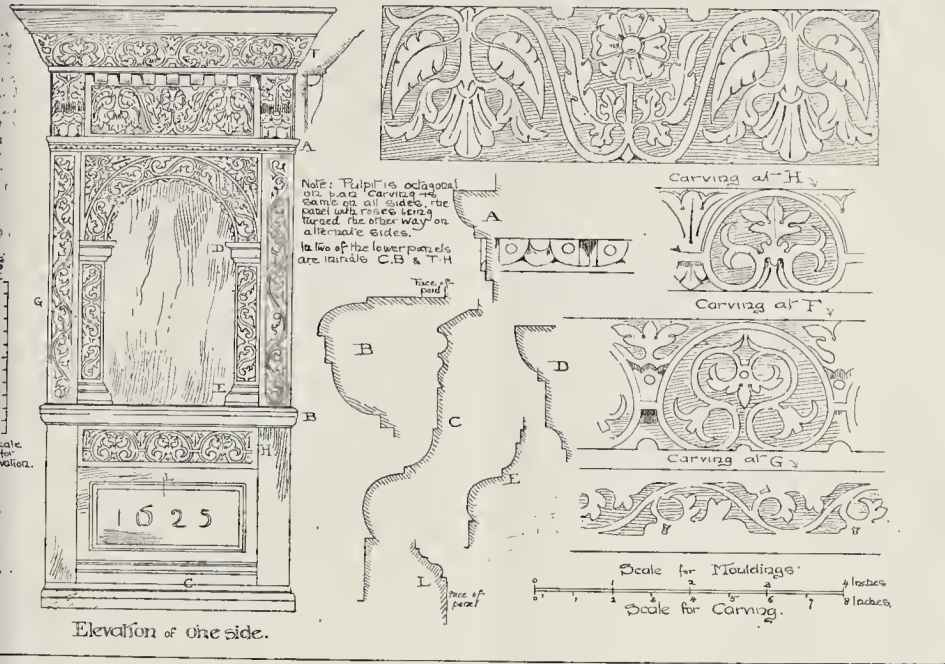 F
A
Note: Pulpit is octagonal
on plan Carving is
same on all sides, the
panel with roses being
turned the other way on
alternate sides.
In two of the lower panels
are initials C.B & T.H
D
G
E
B
H
L
1625
C
Elevation of one side.
scale
for
Carving at H
A
Face of
panel
B
C
D
E
L
Face of
panel
Carving at F
Carving at G
Scale for Mouldings.
0 1 2 3 4 Inches
0 1 2 3 4 5 6 7 8 Inches.
Scale for Carving.